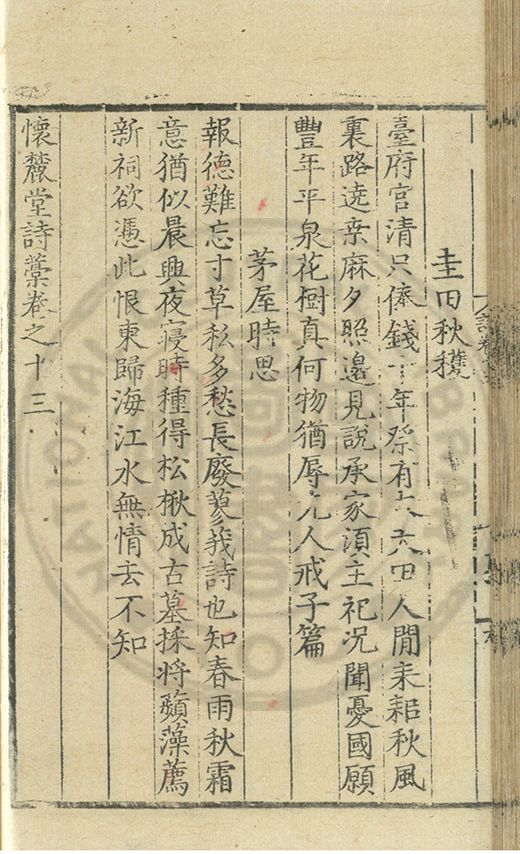 圭田秋穫
臺府官清只俸錢十年祭有大夫田人間耒耜秋風
裏路遶桒麻夕照邊見說承家須主祀况聞憂國願
豐年平泉花樹真何物猶辱先人戒子篇
茅屋時思
報德難忘寸草私多愁長廢蓼莪詩也知春雨秋霜
意猶似晨興夜寢時種得松楸成古墓採將蘋藻薦
新祠欲憑此恨東歸海江水無情去不知
懷麓堂詩藁卷之十三